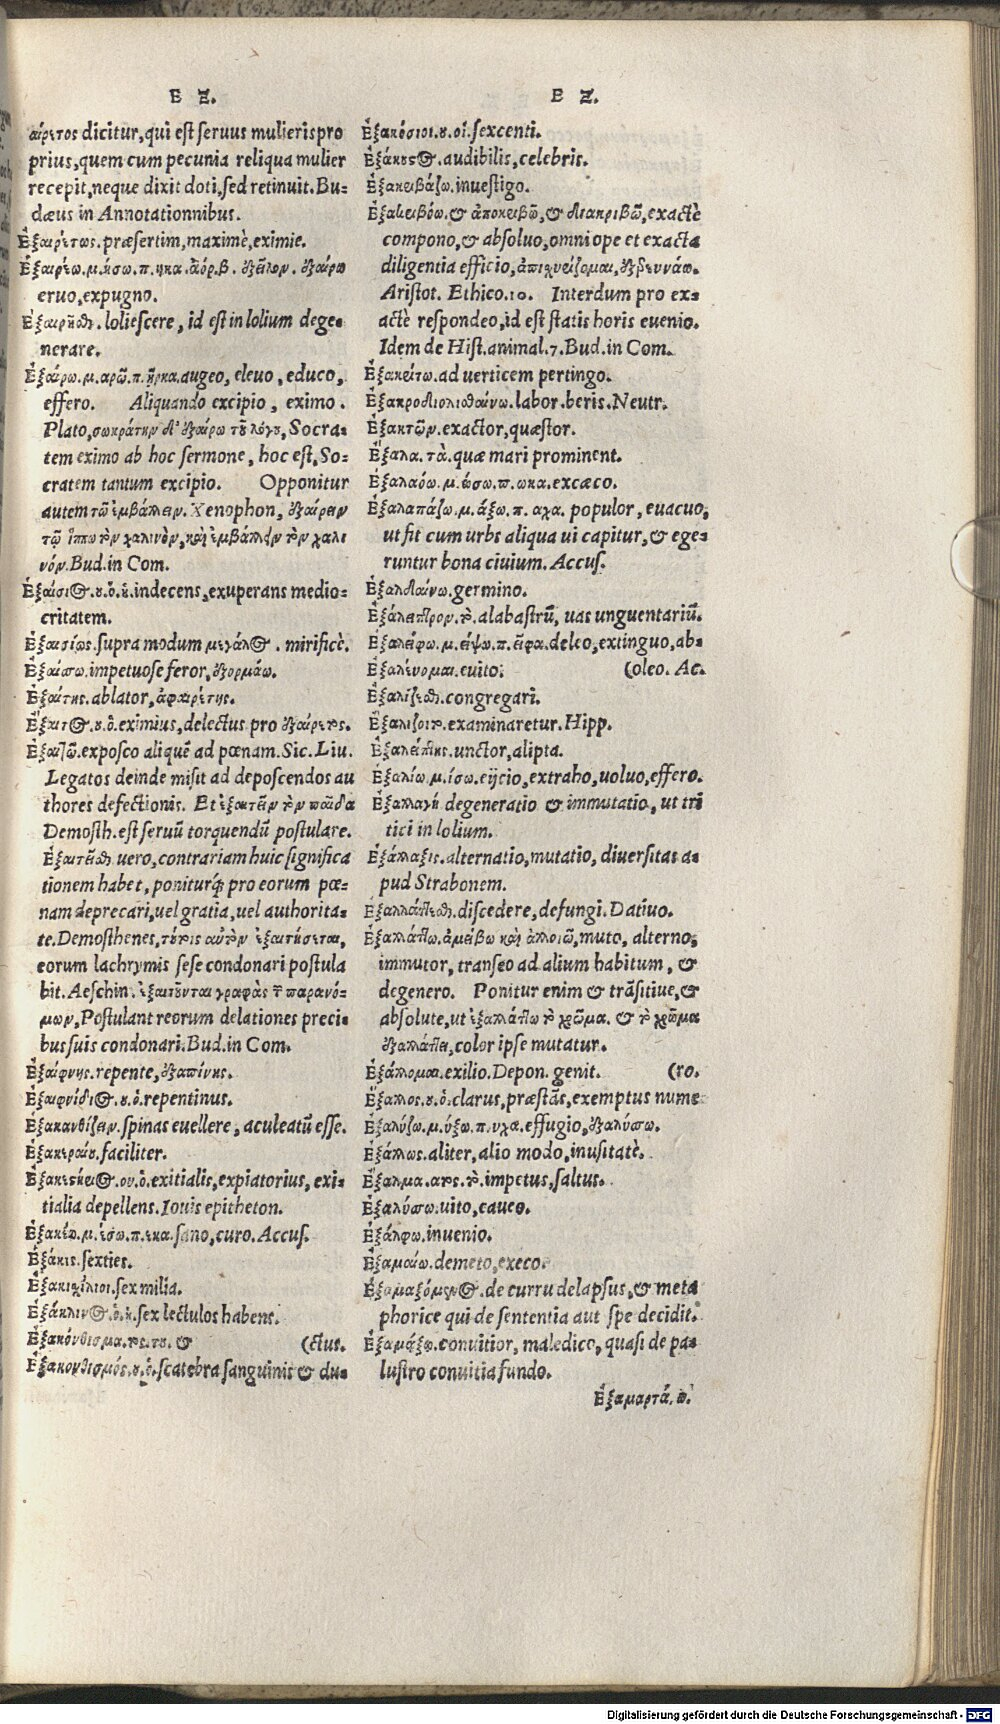 Ε Ξ.
αίρετος dicitur, qui est seruus mulieris pro
prius, quem cum pecunia reliqua mulier
recepit, neque dixit doti, sed retinuit. Bu-
dæus in Annotationnibus.
Ἐξαιρέτως. præsertim, maximè, eximie.
Ἐξαιρέω. μ. ήσω. π. ηκα. ἀόρ. β. ἐξεῖλον. ἐξαίρω
eruo, expugno.
Ἐξαιρῆσθαι. loliescere, id est in lolium dege-
nerare.
Ἐξαίρω. μ. αρῶ. π. ῆρκα. augeo, eleuo, educo,
effero. Aliquando excipio, eximo.
Plato, σωκράτην δ' ἐξαίρω τοῦ λόγου, Socra-
tem eximo ab hoc sermone, hoc est, So-
cratem tantum excipio. Opponitur
autem τῶ ἐμβάλλειν. Xenophon, ἐξαίρειν
τῷ ἵππω τὸν χαλινὸν, καὶ ἐμβάλλειν τὸν χαλι
νόν. Bud. in Com.
Ἐξαίσιος. ου. ὁ. ἡ. indecens, exuperans medio-
critatem.
Ἐξαισίως. supra modum μεγάλος. mirificè.
Ἐξαίσσω. impetuose feror, ἐξορμάω.
Ἐξαίτης. ablator, ἀφαιρέτης.
Ἔξαιτος. ου. ὁ. eximius, delectus pro ἐξαίρετος.
Ἐξαιτῶ. exposco aliquē ad pœnam. Sic. Liu.
Legatos deinde misit ad deposcendos au
thores defectionis. Et ἐξαιτεῖν τὸν παῖδα
Demosth. est seruū torquendū postulare.
Ἐξαιτεῖσθαι uero, contrariam huic significa
tionem habet, poniturq́; pro eorum pœ-
nam deprecari, uel gratia, uel authorita-
te. Demosthenes, τούτοις αὐτὸν ἐξαιτήσεται,
eorum lachrymis sese condonari postula
bit. Aeschin. ἐξαιτοῦνται γραφὰς τ παρανό-
μων, Postulant reorum delationes preci-
bus suis condonari. Bud. in Com.
Ἐξαίφνης. repente, ἐξαπίνης.
Ἐξαιφνίδιος. ου. ὁ. repentinus.
Ἐξακανθίζειν. spinas euellere, aculeatū esse.
Ἐξακεραίου. faciliter.
Ἐξακεστήριος. ου. ὁ. exitialis, expiatorius, exi-
tialia depellens. Iouis epitheton.
Ἐξακέω. μ. έσω. π. εκα. sano, curo. Accus.
Ἑξάκις. sexties.
Ἑξακιχίλιοι. sex milia.
Ἑξάκλινος. ὁ. ἡ. sex lectulos habens.
Ἐξακόνθισμα. τος. το. &amp; (ctus.
Ἐξακονθισμός. ου. ὁ. scatebra sanguinis &amp; du-
Ε Ξ.
Ἑξακόσιοι. ου. οἱ. sexcenti.
Ἐξάκουστος. audibilis, celebris.
Ἐξακριβάζω. inuestigo.
Ἐξακριβόω. &amp; ἀποκριβῶ, &amp; διακριβῶ, exactè
compono, &amp; absoluo, omni ope et exacta
diligentia efficio, ἀπισχυρίζομαι, ἐξερευνάω.
Aristot. Ethico. 10. Interdum pro ex-
actè respondeo, id est statis horis euenio.
Idem de Hist. animal. 7. Bud. in Com.
Ἐξακρίζω. ad uerticem pertingo.
Ἐξακροδιολισθαίνω. labor. beris. Neutr.
Ἐξακτῶρ. exactor, quæstor.
Ἔξαλα. τὰ. quæ mari prominent.
Ἐξαλαόω. μ. ώσω. π. ωκα. excæco.
Ἐξαλαπάζω. μ. άξω. π. αχα. populor, euacuo,
ut fit cum urbs aliqua ui capitur, &amp; ege-
runtur bona ciuium. Accus.
Ἐξαλδαίνω. germino.
Ἐξάλειπτρον. τὸ. alabastrū, uas unguentariū.
Ἐξαλείφω. μ. είψω. π. εῖφα. deleo, extinguo, ab-
Ἐξαλεύομαι. euito. (oleo. Ac.
Ἐξαλίζεσθαι. congregari.
Ἐξαλίζοιτο. examinaretur. Hipp.
Ἐξαλείπτης. unctor, alipta.
Ἐξαλίω. μ. ίσω. eijcio, extraho, uoluo, effero.
Ἐξαλλαγή. degeneratio &amp; immutatio, ut tri
tici in lolium.
Ἐξάλλαξις. alternatio, mutatio, diuersitas a-
pud Strabonem.
Ἐξαλλάττεσθαι. discedere, defungi. Datiuo.
Ἐξαλλάττω. ἀμείβω καὶ ἀλλοιῶ, muto, alterno,
immutor, transeo ad alium habitum, &amp;
degenero. Ponitur enim &amp; trāsitiue, &amp;
absolute, ut ἐξαλλάττω τὸ χρῶμα. &amp; τὸ χρῶμα
ἐξαλλάττει, color ipse mutatur.
Ἐξάλλομαι. exilio. Depon. genit. (ro.
Ἔξαλλος. ου. ὁ. clarus, præstās, exemptus nume
Ἐξαλύζω. μ. ύξω. π. υχα. effugio, ἐξαλύσσω.
Ἐξάλλως. aliter, alio modo, inusitatè.
Ἔξαλμα. ατος. τὸ. impetus, saltus.
Ἐξαλύσσω. uito, caueo.
Ἐξάλφω. inuenio.
Ἐξαμαίω. demeto, execo.
Ἐξαμαξόμενος. de curru delapsus, &amp; meta
phorice qui de sententia aut spe decidit.
Ἐξαμάξω. conuitior, maledico, quasi de pa-
lustro conuitia fundo.
Ἐξαμαρτά. ω.
Digitalisierung gefördert durch die Deutsche Forschungsgemeinschaft - DFG